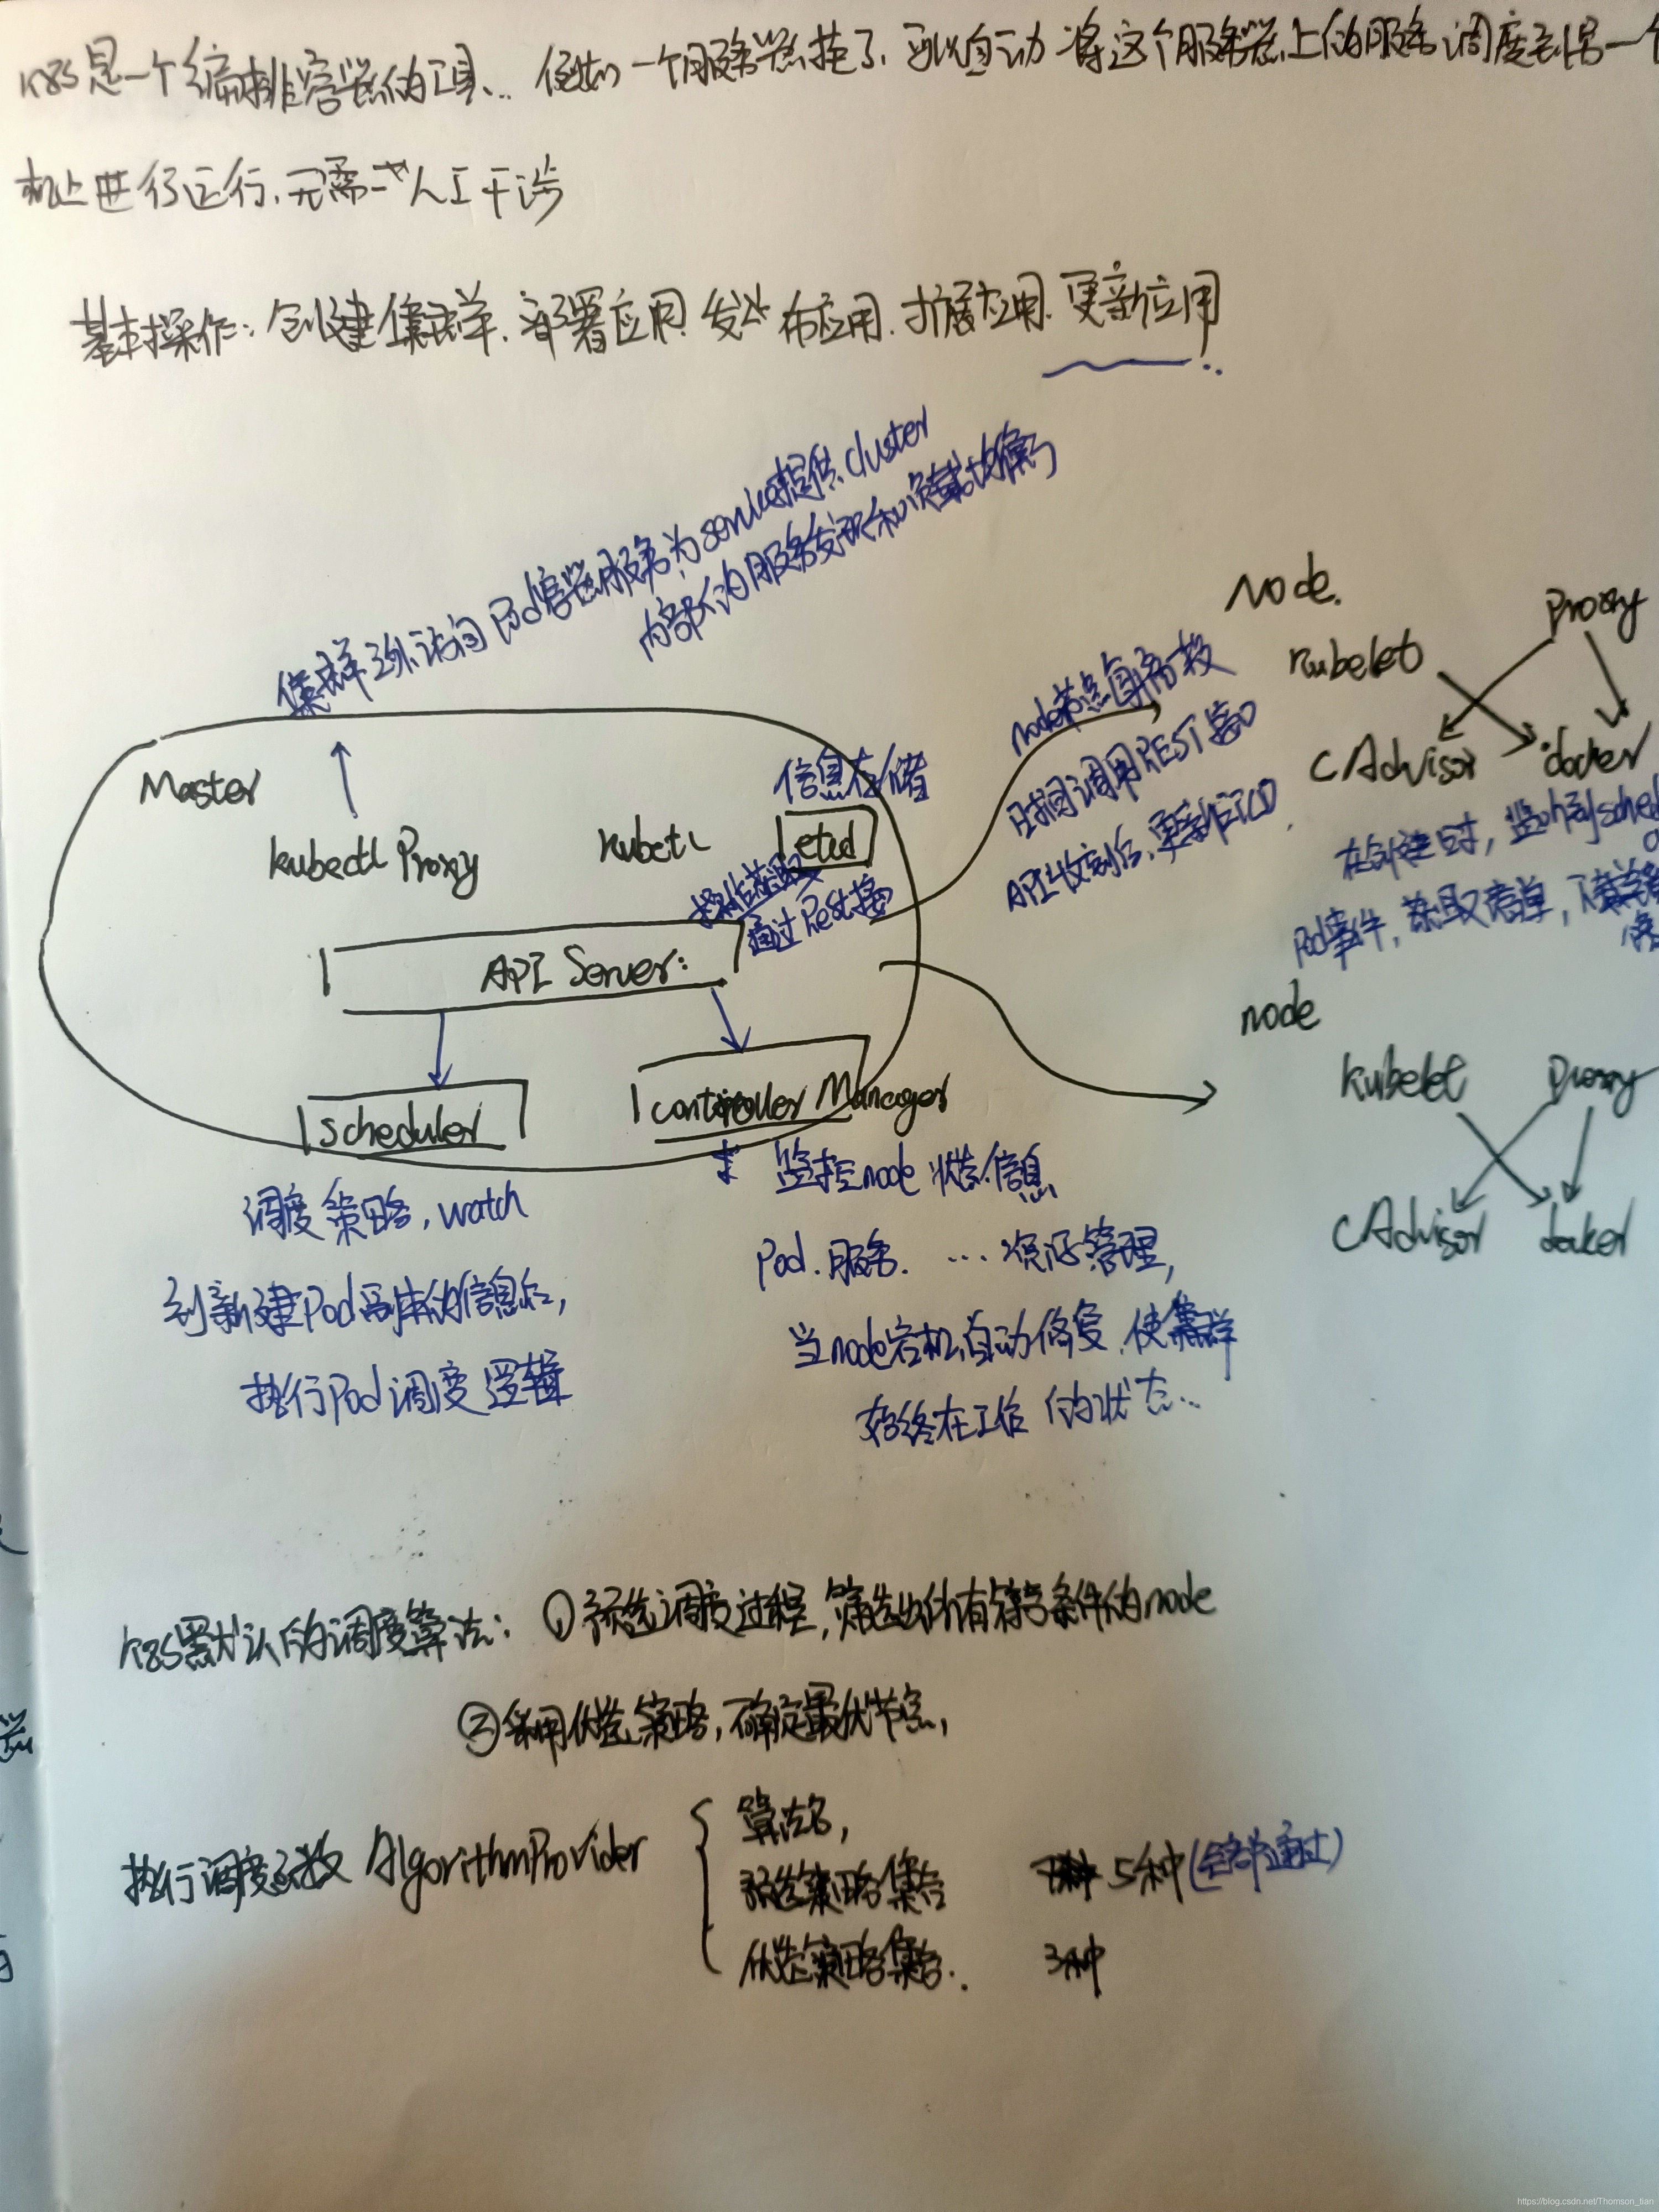 k8s是一个编排容器的工具... 例如一个服务器挂了,可以自动将这个服务器上的服务调度到另一个
机上进行运行,无需 人工干涉
基本操作:创建集群.部署应用.发 布应用.扩展应用.更新应用
集群外访问Pod容器服务为service提供cluster
内部的服务发现和负载均衡
Node.
Proxy
kubelet
cAdvisor
docker
node节点每隔一段
时间调用REST接口
API收到后,更新
在创建时,监听到sched
Pod事件,获取清单,下载
Master
信息存储
kubectl Proxy
kubctl
etcd
操作获取
通过Rest接
API Server:
scheduler
controller Manager
node
kubelet
Proxy
cAdvisor
docker
调度策略,watch
到新建Pod副本的信息后,
执行Pod调度逻辑
监控node 状态信息
Pod.服务. ... 资源管理,
当node宕机,自动修复.使集群
始终在工作 的状态...
k8s默认的调度算法: ①预选调度过程,筛选出所有符合条件的node
②采用优选策略,确定最优节点,
执行调度函数 AlgorithmProvider
算法名,
预选策略集合 5种(全部通过)
优选策略集合. 3种
https://blog.csdn.net/Thomson_tian